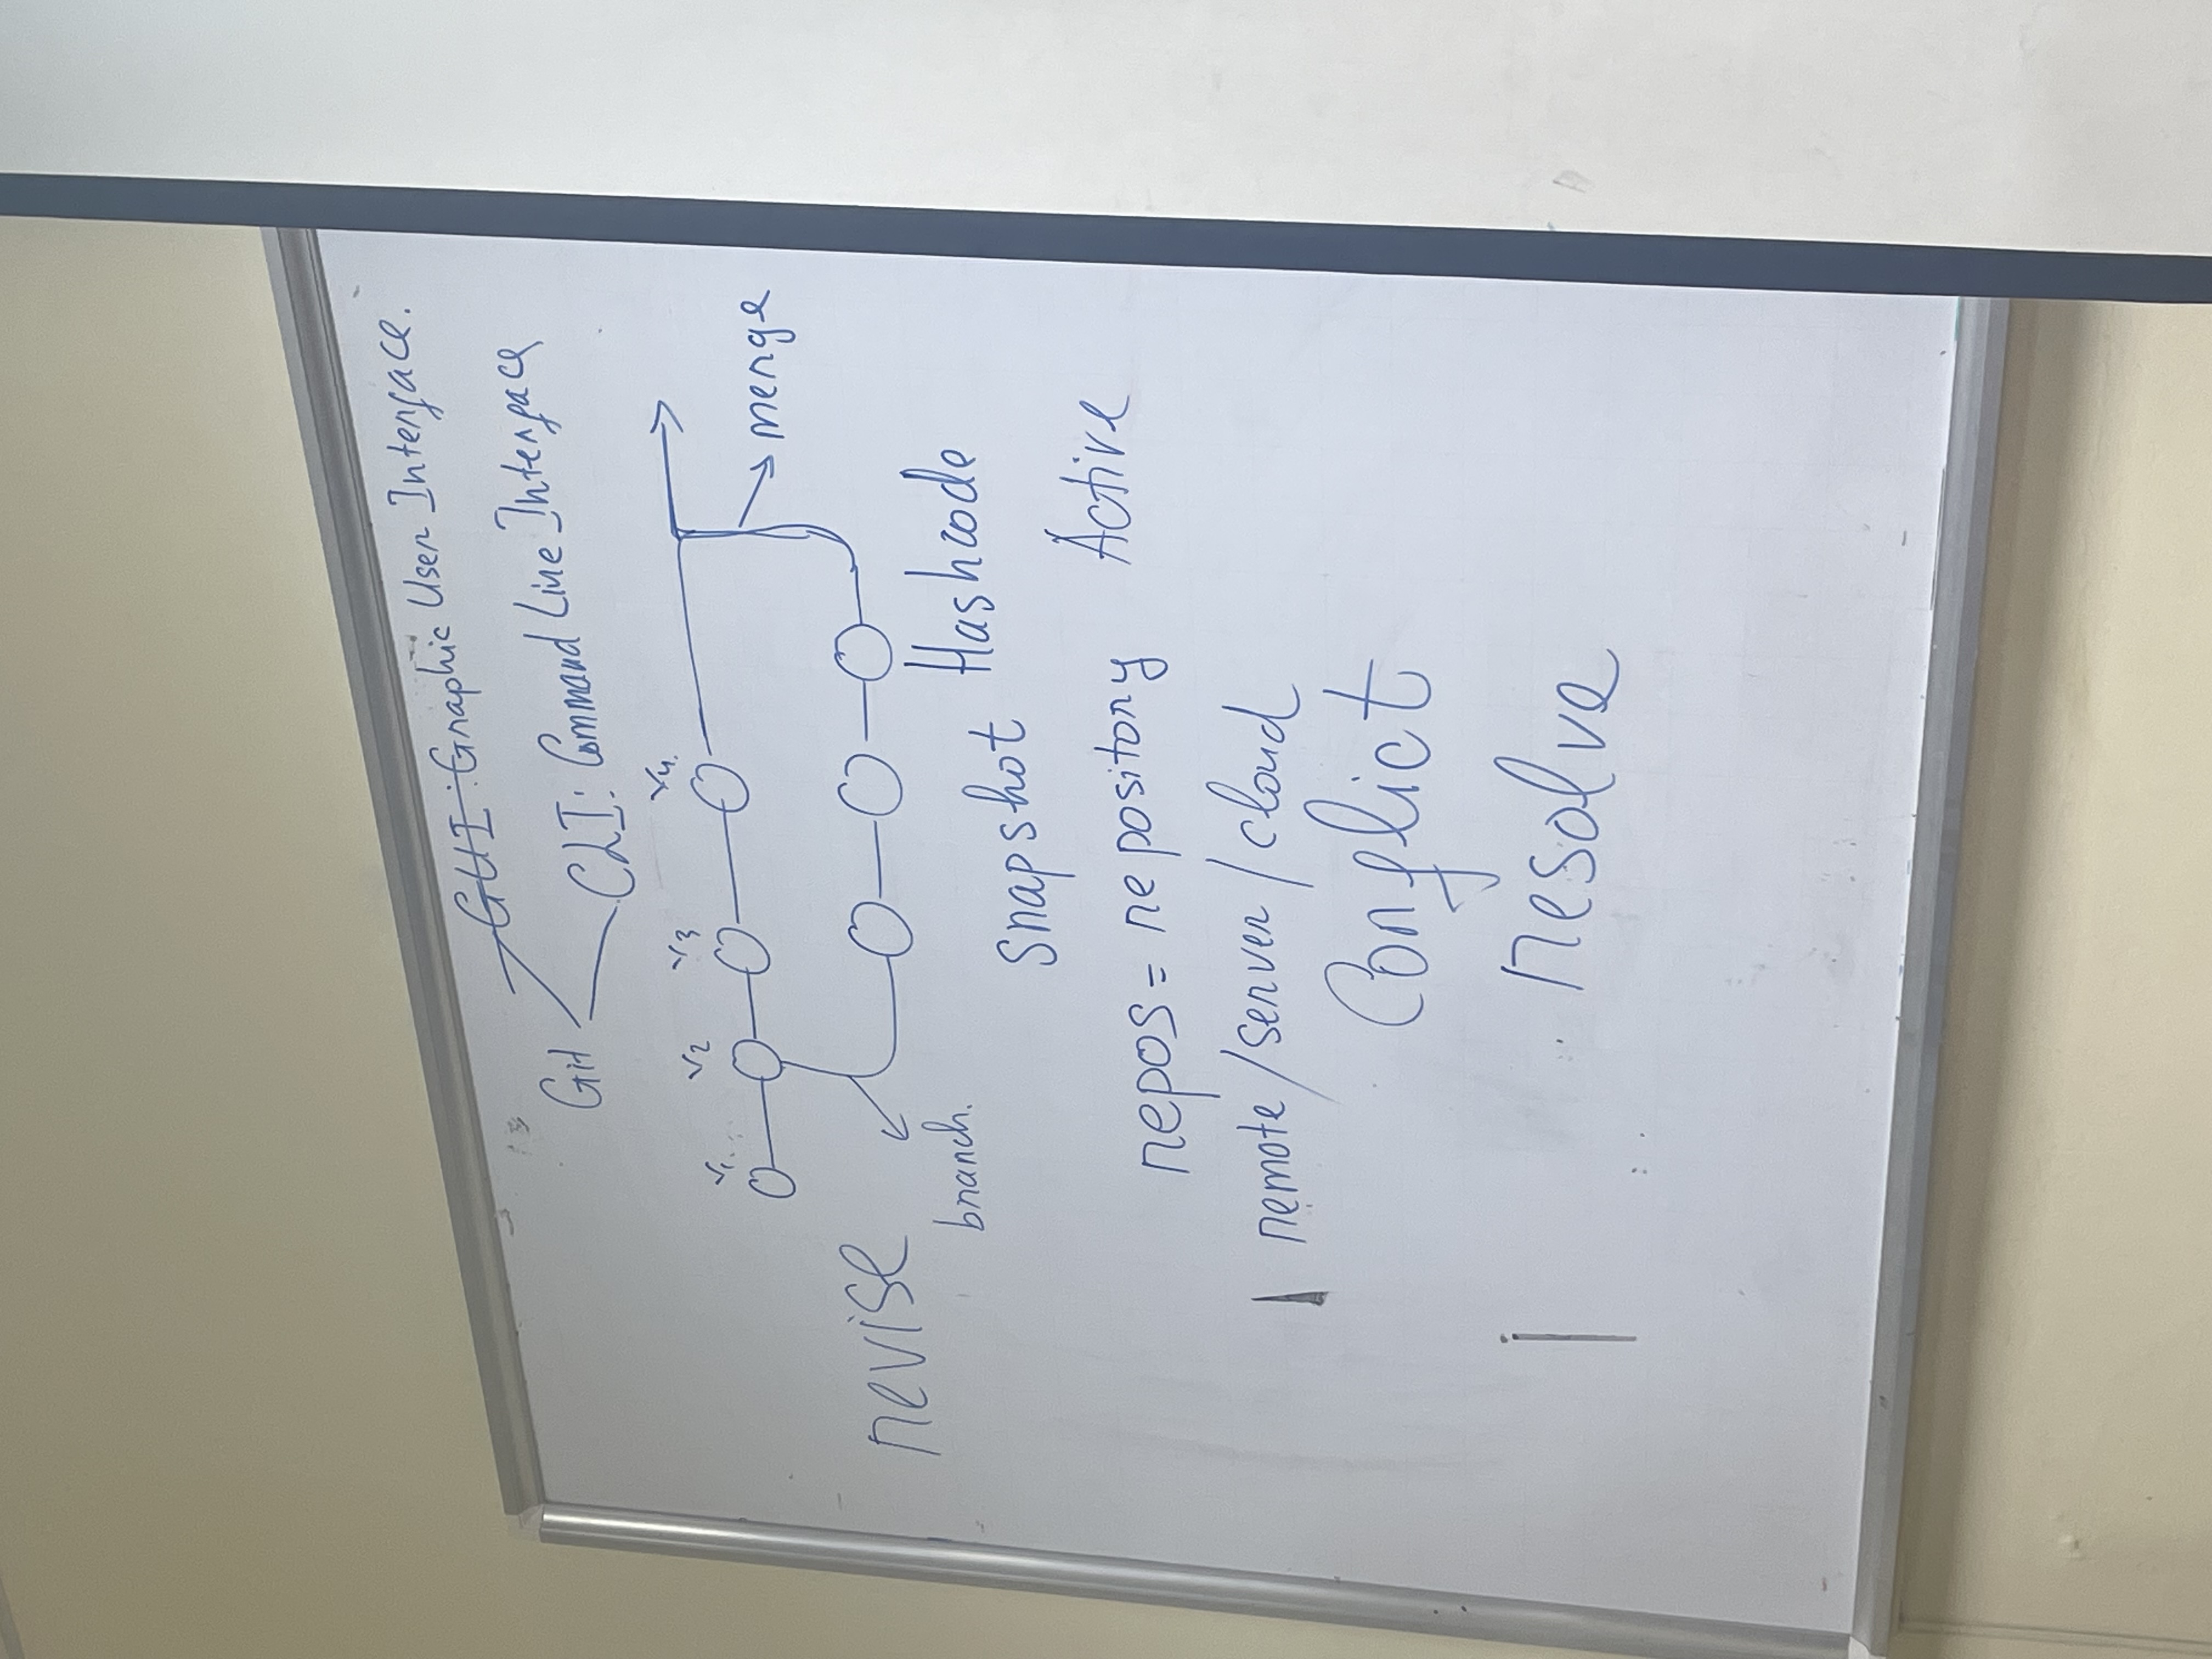 GUI: Graphic User Interface.
Git
CLI: Command Line Interface
v1. v2 v3 v4.
merge
revise
branch.
Snapshot Hashcode
repos = repository Active
remote / server / cloud
Conflict
resolve